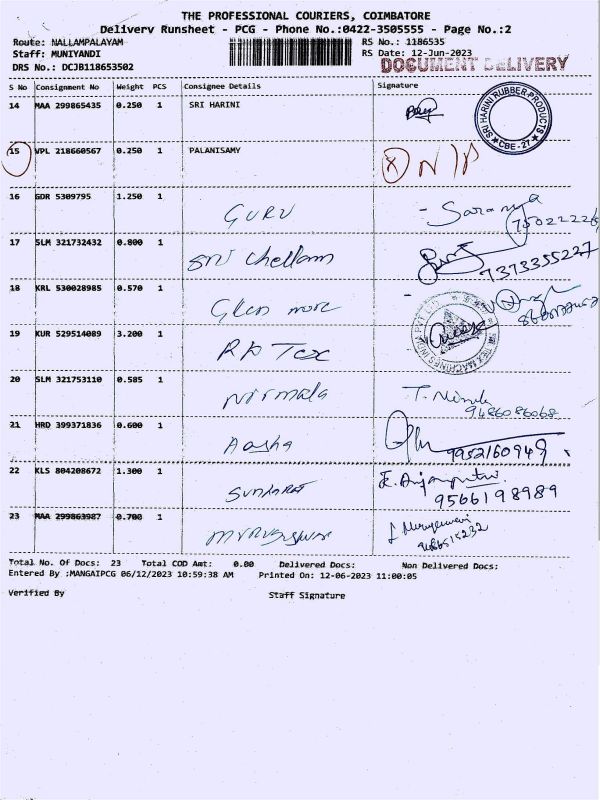 THE PROFESSIONAL COURIERS, COIMBATORE
Delivery Runsheet - PCG - Phone No.:0422-3505555 - Page No.:2
Route: NALLAMPALAYAM RS No.: 1186535
Staff: MUNIYANDI RS Date: 12-Jun-2023
DRS No.: DCJB118653502 DOCUMENT DELIVERY
S No Consignment No Weight PCS Consignee Details Signature
14 MAA 299865435 0.250 1 SRI HARINI
SRI HARINI RUBBER PRODUCTS
CBE-27
15 VPL 218660567 0.250 1 PALANISAMY X N/P
16 GDR 5309795 1.250 1
GURU - Saranya
17 SLM 321732432 0.800 1
Sri Chellam 7373355227
18 KRL 530028985 0.570 1
Glen more
19 KUR 529514089 3.200 1
R P Tex
20 SLM 321753110 0.585 1
Nirmala 9486086068
21 HRD 399371836 0.600 1
Aasha 9952160949
22 KLS 804208672 1.300 1
9566198989
23 MAA 299863987 0.700 1
Total No. Of Docs: 23 Total COD Amt: 0.00 Delivered Docs: Non Delivered Docs:
Entered By :MANGAIPCG 06/12/2023 10:59:38 AM Printed On: 12-06-2023 11:00:05
Verified By Staff Signature